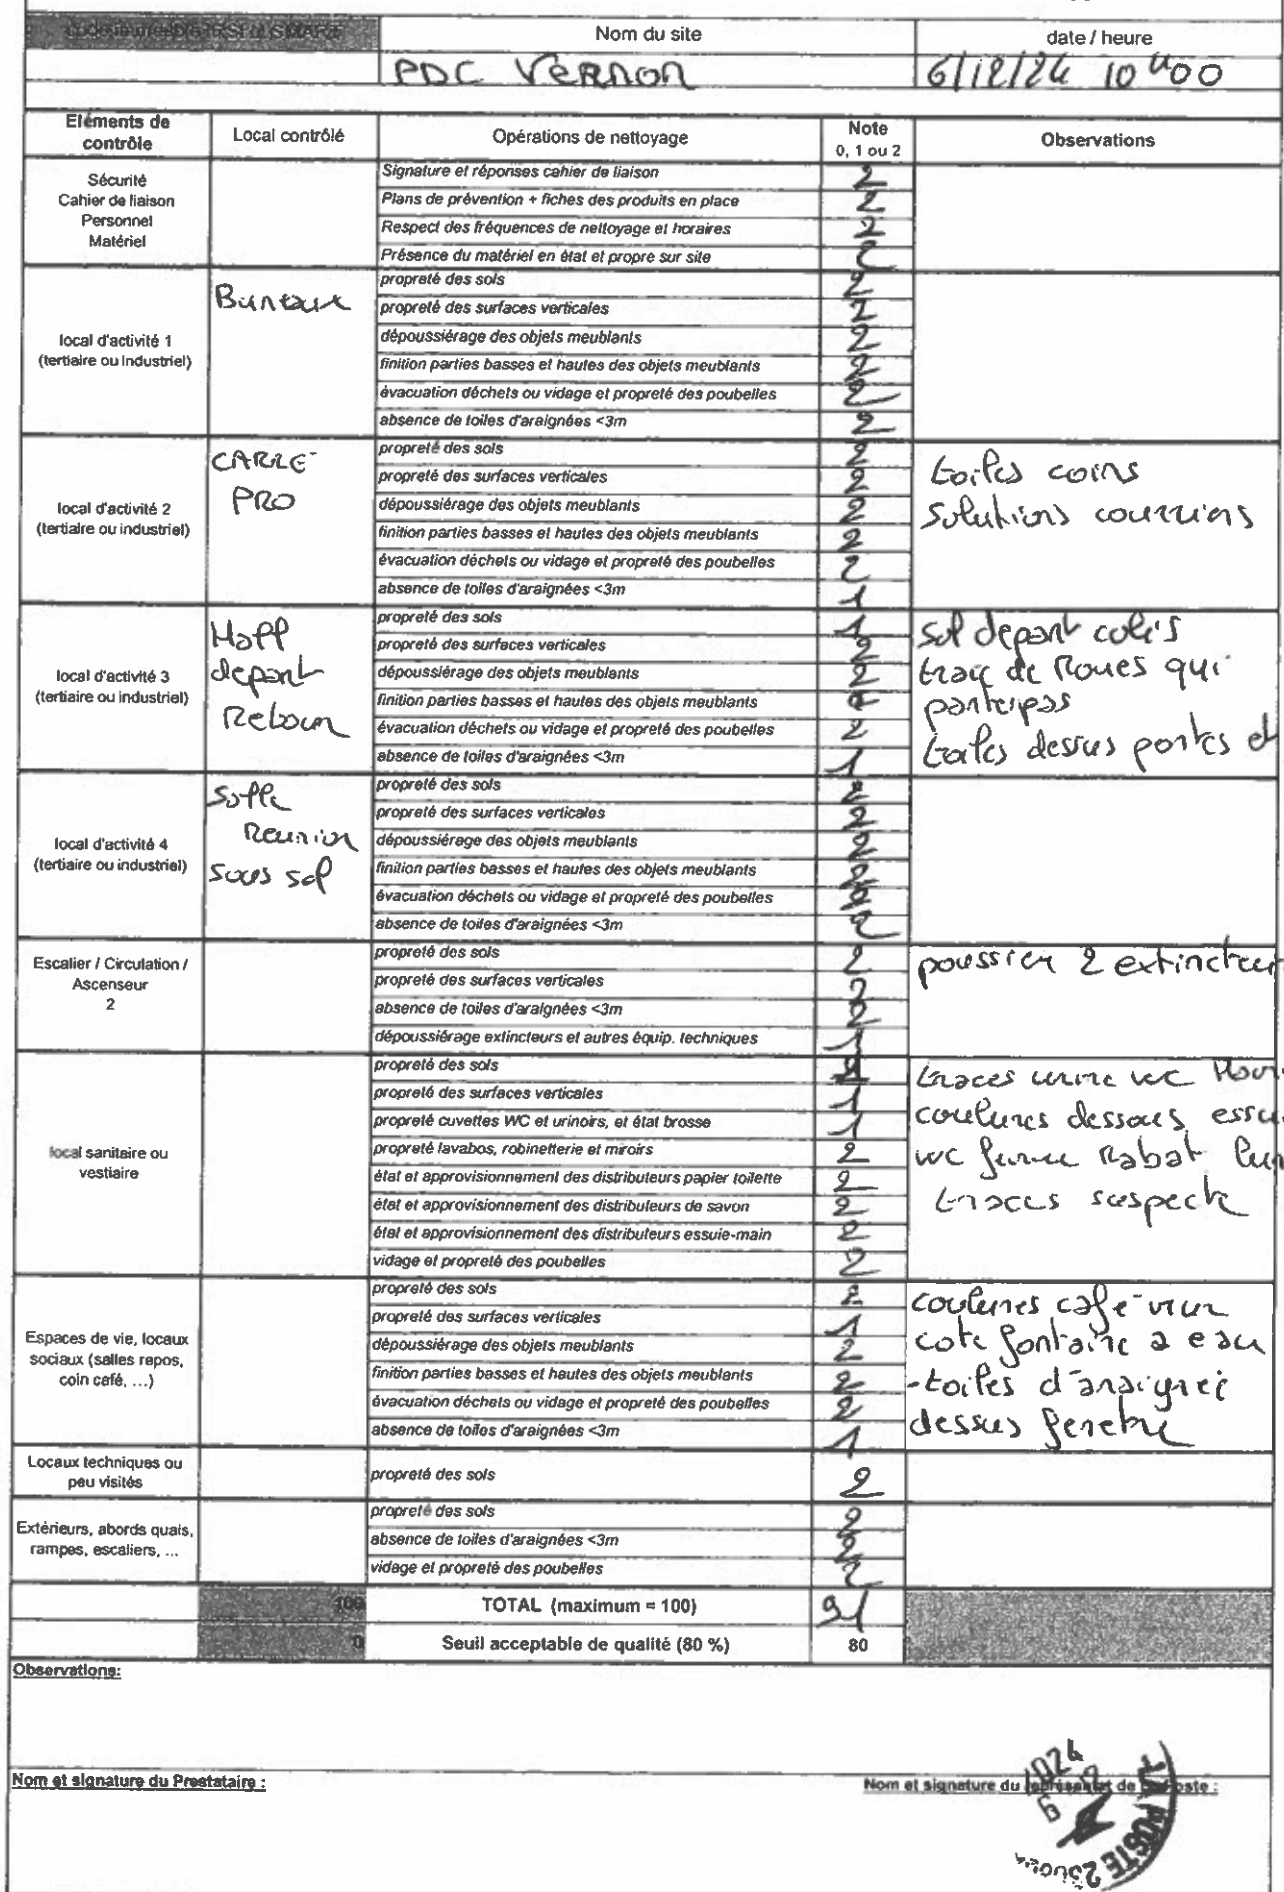 Nom du site
date / heure
PDC VERNON
6/12/24 10H00
Eléments de contrôle
Local contrôlé
Opérations de nettoyage
Note
0, 1 ou 2
Observations
Sécurité
Cahier de liaison
Personnel
Matériel
Signature et réponses cahier de liaison 2
Plans de prévention + fiches des produits en place 2
Respect des fréquences de nettoyage et horaires 2
Présence du matériel en état et propre sur site 2
local d'activité 1
(tertiaire ou industriel)
Bureaux
propreté des sols 2
propreté des surfaces verticales 2
dépoussiérage des objets meublants 2
finition parties basses et hautes des objets meublants 2
évacuation déchets ou vidage et propreté des poubelles 2
absence de toiles d'araignées <3m 2
local d'activité 2
(tertiaire ou industriel)
CARRE
PRO
propreté des sols 2
propreté des surfaces verticales 2
dépoussiérage des objets meublants 2
finition parties basses et hautes des objets meublants 2
évacuation déchets ou vidage et propreté des poubelles 2
absence de toiles d'araignées <3m 1
toiles coins
solutions courriers
local d'activité 3
(tertiaire ou industriel)
Hall
depart
Retour
propreté des sols 1
propreté des surfaces verticales 2
dépoussiérage des objets meublants 2
finition parties basses et hautes des objets meublants
évacuation déchets ou vidage et propreté des poubelles 2
absence de toiles d'araignées <3m 1
sol depart colis
trac de Roues qui
partent pas
toiles dessus portes et
local d'activité 4
(tertiaire ou industriel)
Salle
Reunion
sous sol
propreté des sols 2
propreté des surfaces verticales 2
dépoussiérage des objets meublants 2
finition parties basses et hautes des objets meublants 2
évacuation déchets ou vidage et propreté des poubelles 2
absence de toiles d'araignées <3m 2
Escalier / Circulation /
Ascenseur
2
propreté des sols 2
propreté des surfaces verticales 2
absence de toiles d'araignées <3m 2
dépoussiérage extincteurs et autres équip. techniques 1
poussier 2 extincteur
local sanitaire ou
vestiaire
propreté des sols 1
propreté des surfaces verticales 1
propreté cuvettes WC et urinoirs, et état brosse 1
propreté lavabos, robinetterie et miroirs 2
état et approvisionnement des distributeurs papier toilette 2
état et approvisionnement des distributeurs de savon 2
état et approvisionnement des distributeurs essuie-main 2
vidage et propreté des poubelles 2
traces urine wc
coulures dessous
wc Rabat
traces suspecte
Espaces de vie, locaux
sociaux (salles repos,
coin café, ...)
propreté des sols 2
propreté des surfaces verticales 1
dépoussiérage des objets meublants 2
finition parties basses et hautes des objets meublants 2
évacuation déchets ou vidage et propreté des poubelles 2
absence de toiles d'araignées <3m 1
coulures café mur
cote fontaine a eau
-toiles d'araignée
dessus fenetre
Locaux techniques ou
peu visités
propreté des sols 2
Extérieurs, abords quais,
rampes, escaliers, ...
propreté des sols 2
absence de toiles d'araignées <3m 2
vidage et propreté des poubelles 2
100
TOTAL (maximum = 100)
91
0
Seuil acceptable de qualité (80 %)
80
Observations:
Nom et signature du Prestataire :
Nom et signature du représentant de La Poste :
2024
12
6
LA POSTE